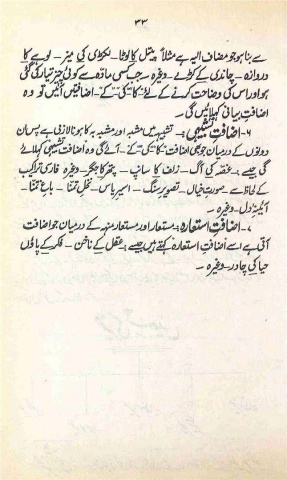 ۳۳
سے بنا ہو جو مضاف الیہ ہے مثلاً پیتل کا لوٹا ۔ لکڑی کی میز ۔ لوہے کا
دروازہ ۔ چاندی کے کڑے ۔ وغیرہ ۔ جب کسی مادّہ سے کوئی چیز تیار کی گئی
ہو اور اس کی وضاحت کرنے کے لئے "کا کی کے" ۔ اضافتیں آئیں تو وہ
اضافتِ بیانی کہلائیں گی ۔
۶ ۔ اضافتِ تشبیہی: تشبیہ میں مشبہ اور مشبہ بہ کا ہونا لازمی ہے پس ان
دونوں کے درمیان جو بھی اضافت "کا کی کے" ۔ آئے گی وہ اضافت تشبیہی کہلائے
گی جیسے: غصہ کی آگ ۔ زلف کا سانپ ۔ پتھر کا جگر ۔ وغیرہ فارسی تراکیب
کے لحاظ سے صورتِ خیال ۔ تصویرِ سنگ ۔ اسیرِ یاس ۔ نخلِ تمنا ۔ باغِ تمنا ۔
آئینۂ دل ۔ وغیرہ ۔
۷ ۔ اضافتِ استعارہ: مستعار اور مستعار منہ کے درمیان جو اضافت
آتی ہے اسے اضافتِ استعارہ کہتے ہیں جیسے: عقل کے ناخن ۔ فکر کے پاؤں
حیا کی چادر ۔ وغیرہ ۔